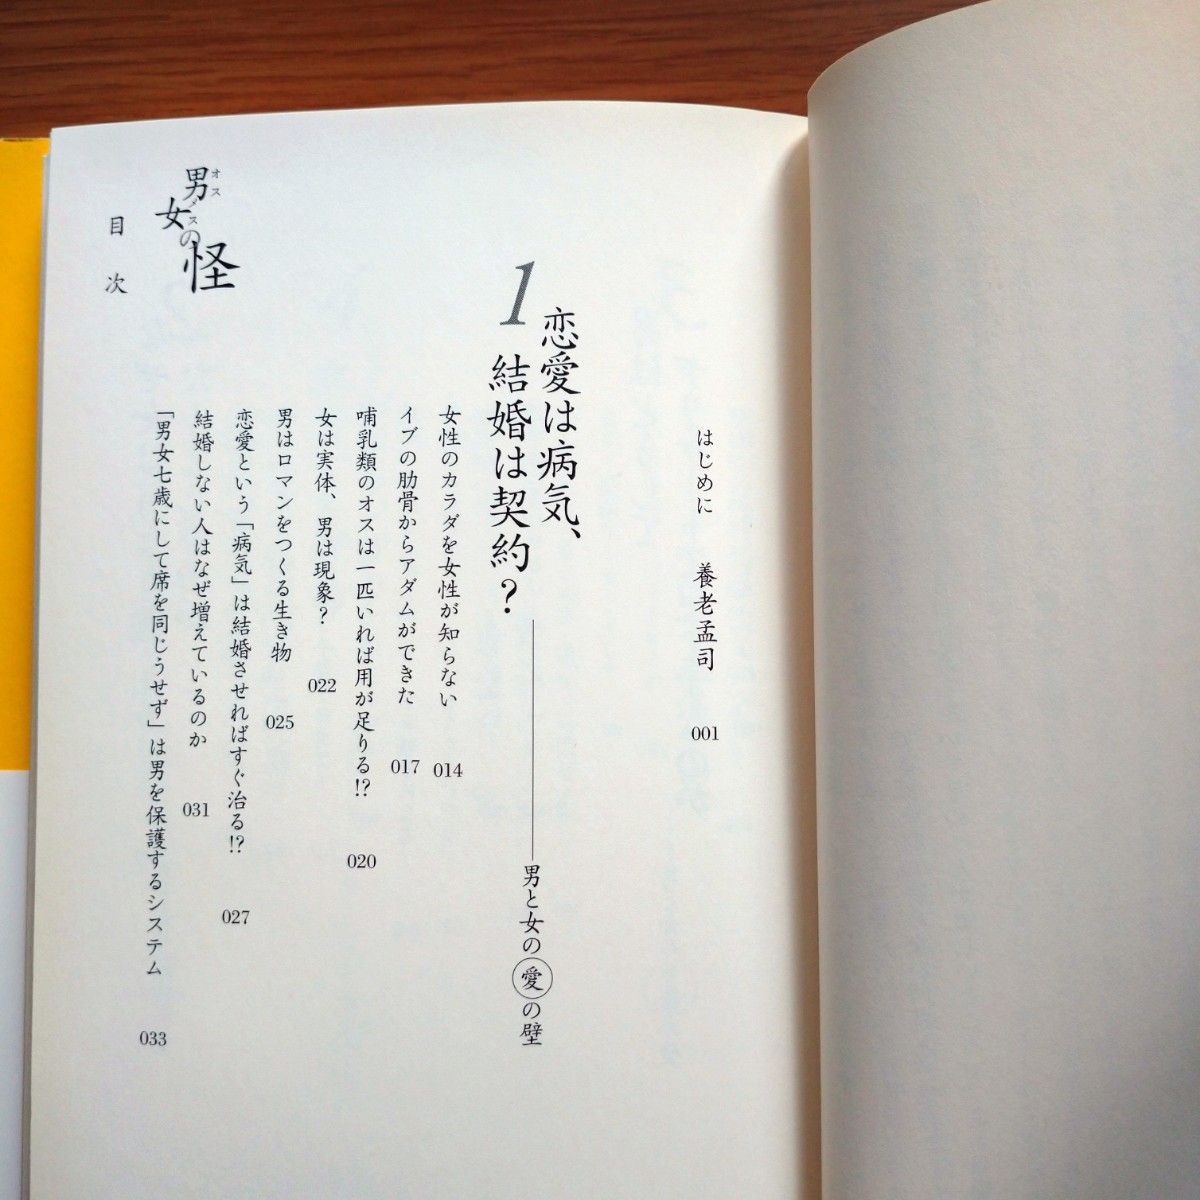 はじめに 養老孟司 001
1 恋愛は病気、
結婚は契約？――男と女の愛の壁
女性のカラダを女性が知らない 014
イブの肋骨からアダムができた 017
哺乳類のオスは一匹いれば用が足りる!? 020
女は実体、男は現象？ 022
男はロマンをつくる生き物 025
恋愛という「病気」は結婚させればすぐ治る!? 027
結婚しない人はなぜ増えているのか 031
「男女七歳にして席を同じうせず」は男を保護するシステム 033
男女の怪
オス
メス
目次